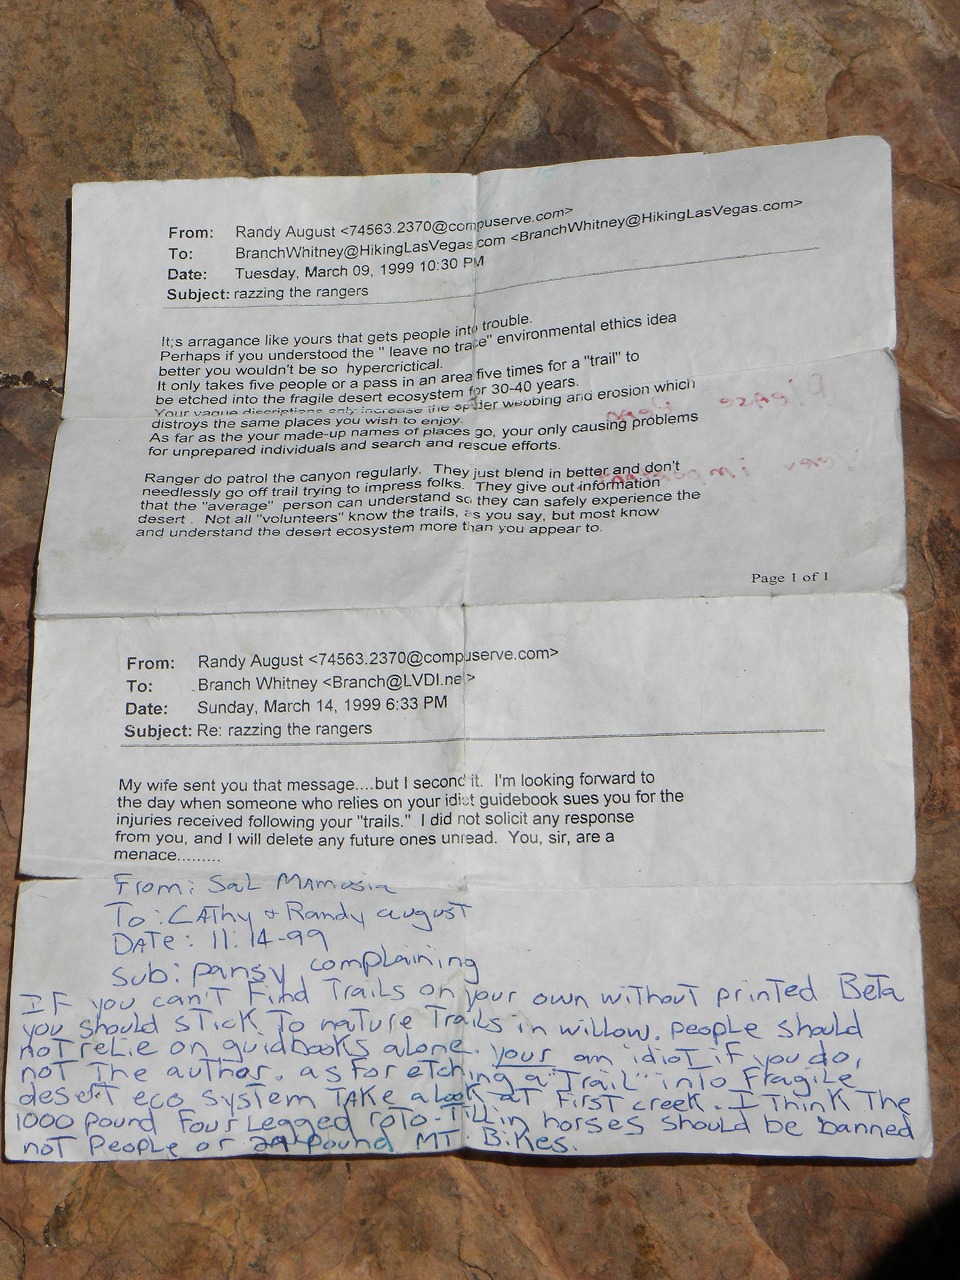 From: Randy August <74563.2370@compuserve.com>
To: BranchWhitney@HikingLasVegas.com <BranchWhitney@HikingLasVegas.com>
Date: Tuesday, March 09, 1999 10:30 PM
Subject: razzing the rangers
It;s arragance like yours that gets people into trouble.
Perhaps if you understood the " leave no trace" environmental ethics idea
better you wouldn't be so hypercrictical.
It only takes five people or a pass in an area five times for a "trail" to
be etched into the fragile desert ecosystem for 30-40 years.
Your vague discriptions only increase the spider webbing and erosion which
distroys the same places you wish to enjoy.
As far as the your made-up names of places go, your only causing problems
for unprepared individuals and search and rescue efforts.
Ranger do patrol the canyon regularly. They just blend in better and don't
needlessly go off trail trying to impress folks. They give out information
that the "average" person can understand so they can safely experience the
desert . Not all "volunteers" know the trails, as you say, but most know
and understand the desert ecosystem more than you appear to.
Page 1 of 1
From: Randy August <74563.2370@compuserve.com>
To: Branch Whitney <Branch@LVDI.net>
Date: Sunday, March 14, 1999 6:33 PM
Subject: Re: razzing the rangers
My wife sent you that message....but I second it. I'm looking forward to
the day when someone who relies on your idiot guidebook sues you for the
injuries received following your "trails." I did not solicit any response
from you, and I will delete any future ones unread. You, sir, are a
menace.........
From: Sal Mamusia
To: CAThy + Randy august
DATe: 11-14-99
Sub: pansy complaining
IF you can'T Find Trails on your own wiThouT printed BeTa
you should sTick To naTure Trails in willow. people should
noT relie on guidbooks alone. your an idioT if you do,
noT The auThor. as for eTching a "Trail" inTo Fragile
deserT eco sysTem TAKe a look aT FirsT creek. I Think The
1000 pound Four Legged roTo-Tillin horses should be banned
noT People or 29 Pound MT. BiKes.